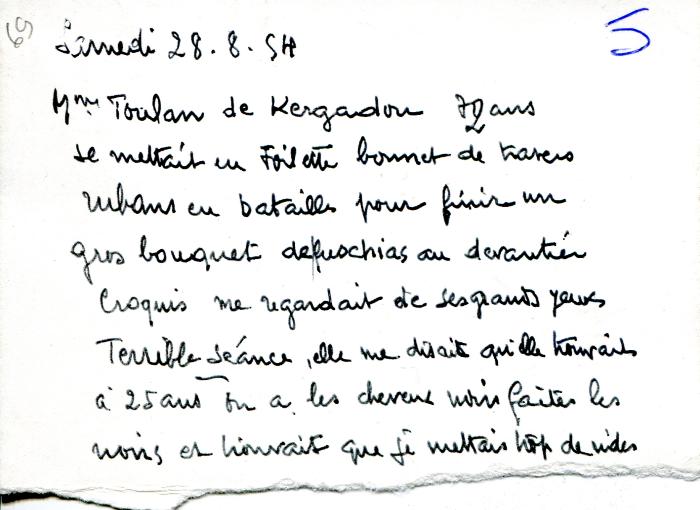 69
5
Samedi 28.8.54
Mme Toulan de Kergadou 72 ans
se mettait en Toilette bonnet de travers
rubans en batailles pour finir un
gros bouquet de fuschias au devantier
Croquis me regardait de ses grands yeux
Terrible séance, elle me disait qu'elle trouvait
à 25 ans on a les cheveux noirs faites les
noirs et trouvait que je mettais trop de rides